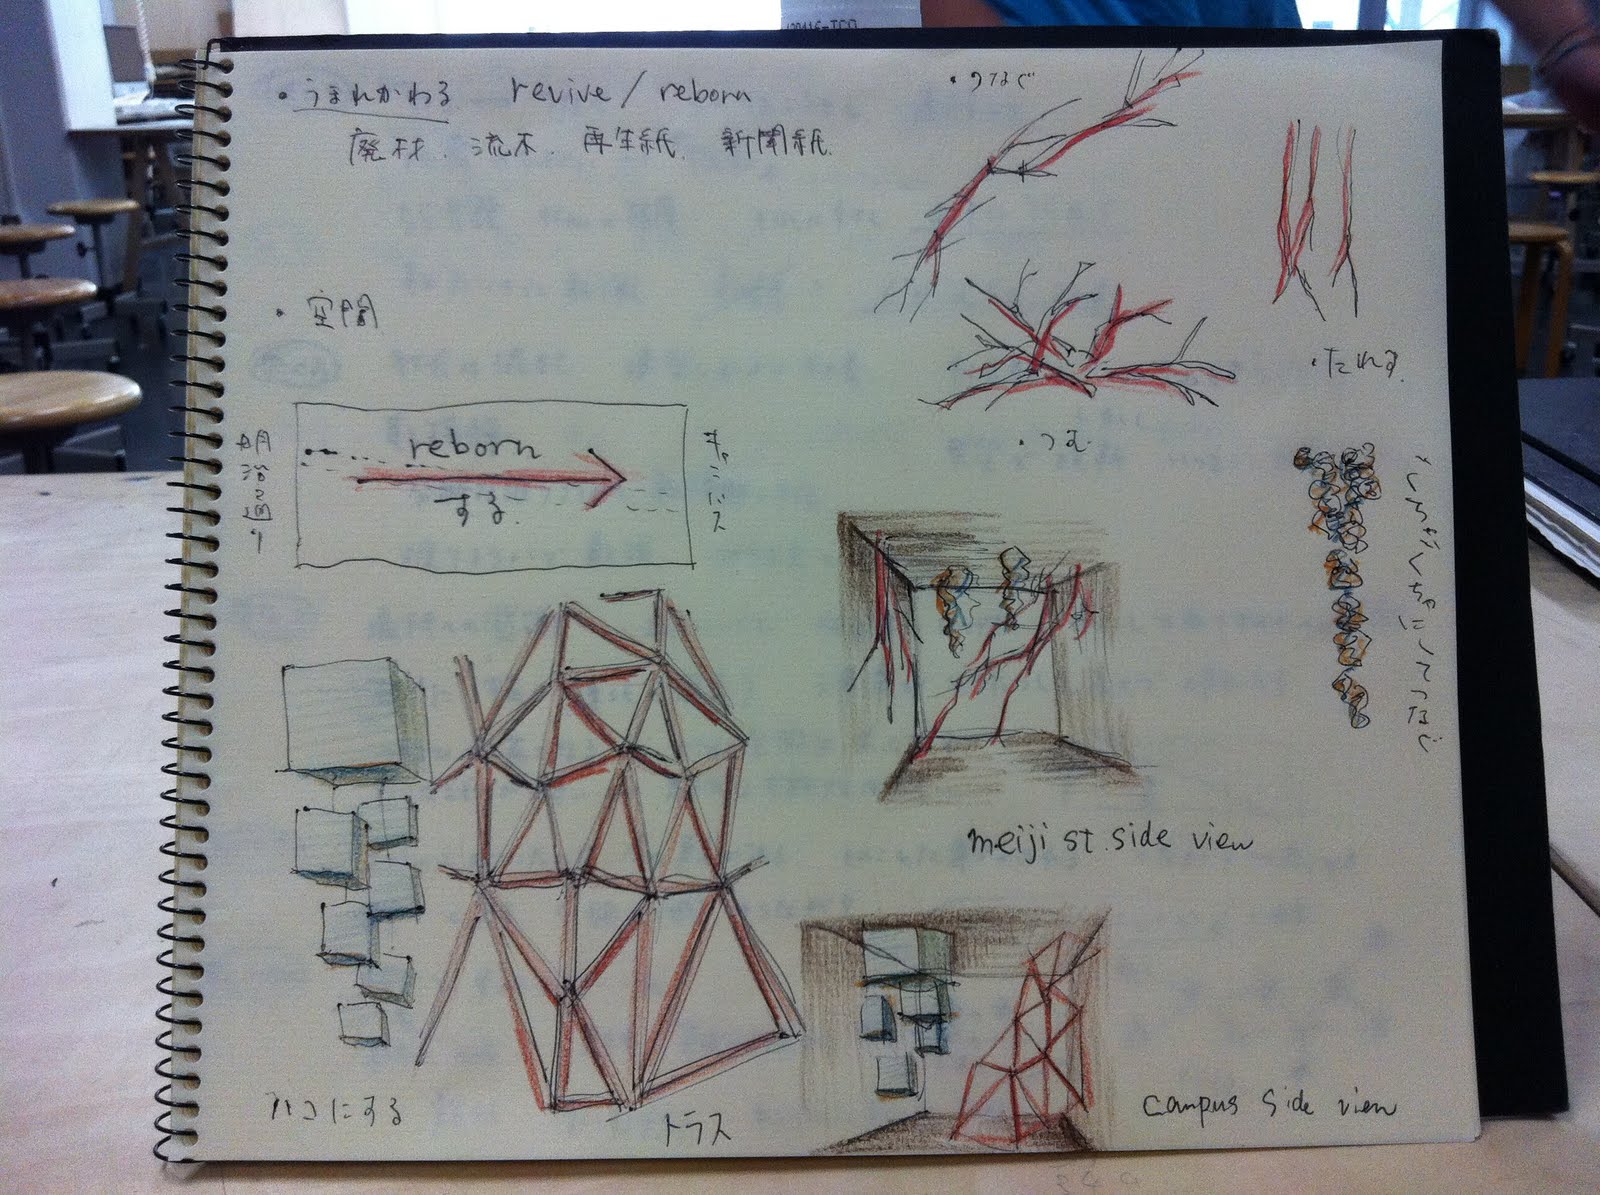 ・うまれかわる revive / reborn
廃材. 流木. 再生紙. 新聞紙.
・つなぐ
・たれる.
・つむ
・空間
明治通り
reborn
する.
キャンパス
meiji st. side view
ハコにする
トラス
campus side view